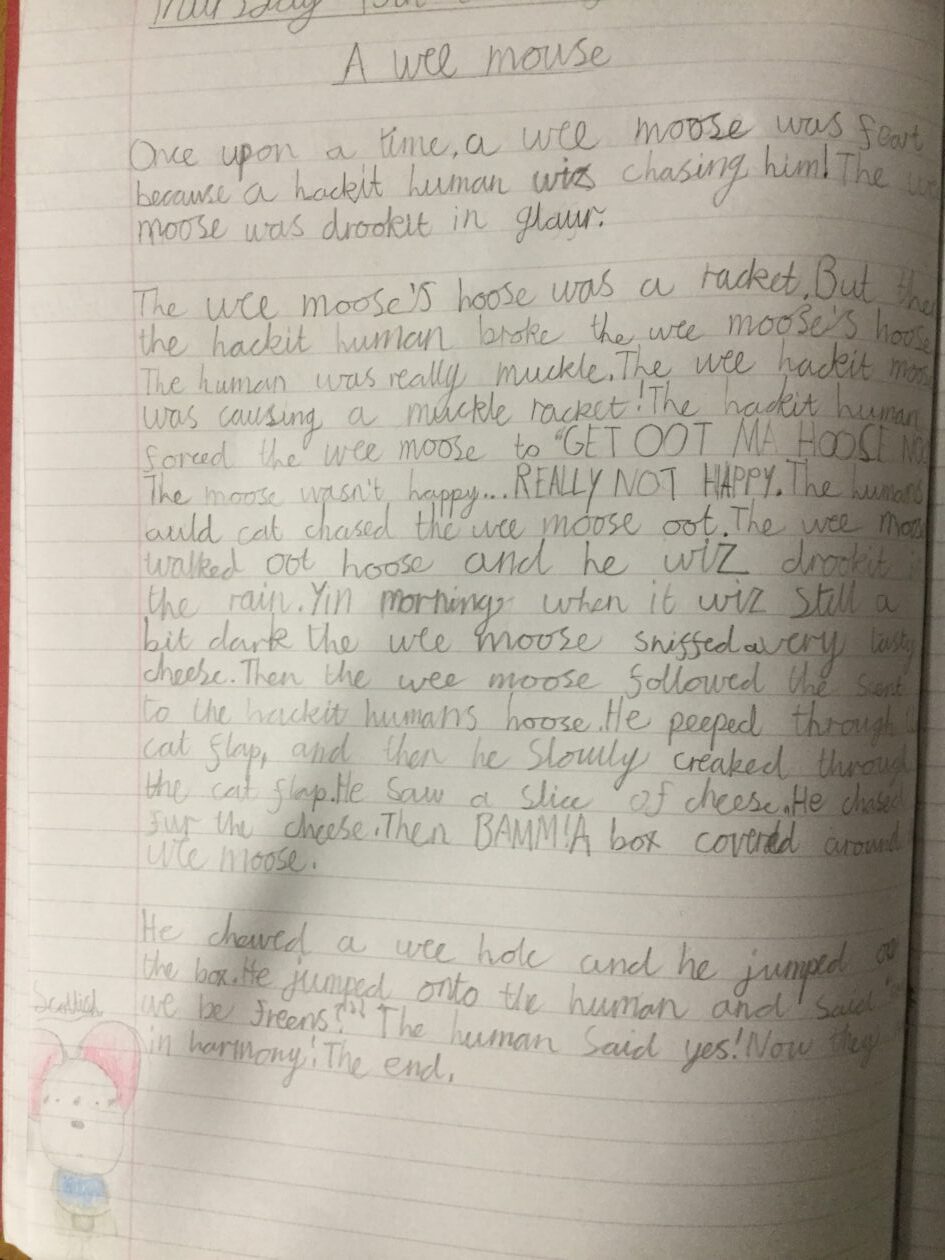 Thursday
A wee mouse
Once upon a time, a wee moose was feart
because a hackit human wiz chasing him! The
moose was drookit in glaur.
The wee moose's hoose was a racket. But then
the hackit human broke the wee moose's hoose
The human was really muckle. The wee hackit moose
was causing a muckle racket! The hackit human
forced the wee moose to "GET OOT MA HOOSE
The moose wasn't happy... REALLY NOT HAPPY. The humans
auld cat chased the wee moose oot. The wee moose
walked oot hoose and he wiz drookit
the rain. Yin morning, when it wiz still a
bit dark the wee moose sniffed a very tasty
cheese. Then the wee moose followed the scent
to the hackit humans hoose. He peeped through
cat flap, and then he slowly creaked through
the cat flap. He saw a slice of cheese. He chased
fur the cheese. Then BAMM! A box covered around
wee moose.
He chewed a wee hole and he jumped
the box. He jumped onto the human and said
we be freens?" The human said yes! Now they
in harmony! The end.
Scottish